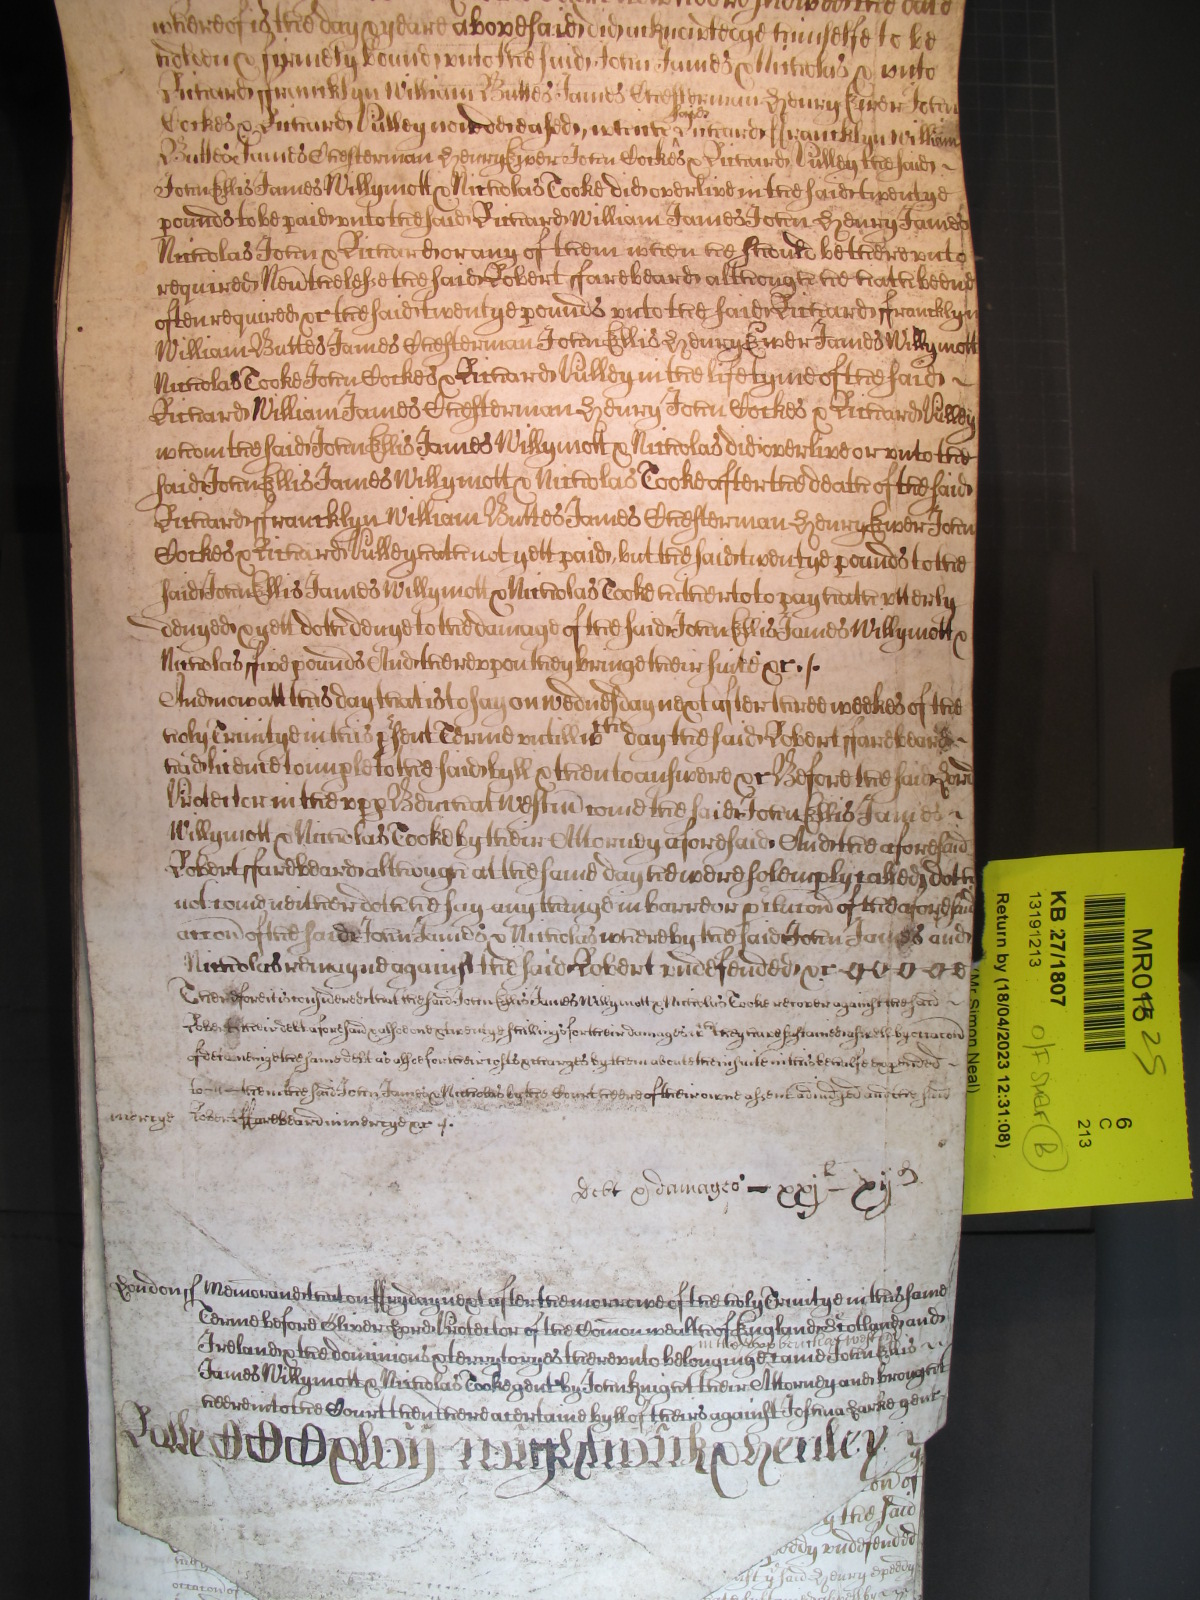 whereof is the day & yeare abovesaid did acknowledge himselfe to be
holden & firmely bound unto the said John James & Nicholas & unto
Richard ffrancklyn William Buttes James Chesterman Henry Ewer John
Cockes & Richard Pulley now deceased, which said Richard ffrancklyn William
Buttes James Chesterman Henry Ewer John Cockes & Richard Pulley the said
John Ellis James Willymott & Nicholas Cooke did overlive in the said twentye
pounds to be paid unto the said Richard William James John Henry James
Nicholas John & Richard or any of them when he should be thereunto
required Neṽthelesse the said Robert ffarebeard although he hath beene
often required &c the said twentye pounds unto the said Richard ffrancklyn
William Buttes James Chesterman John Ellis Henry Ewer James Willymott
Nicholas Cooke John Cockes & Richard Pulley in the life tyme of the said
Richard William James Chesterman Henry John Cockes & Richard Pulley
whom the said John Ellis James Willymott & Nicholas did overlive or unto the
said John Ellis James Willymott & Nicholas Cooke after the death of the said
Richard ffrancklyn William Buttes James Chesterman Henry Ewer John
Cockes & Richard Pulley hath not yett paid, but the said twentye pounds to the
said John Ellis James Willymott & Nicholas Cooke hitherto to pay hath utterly
denyed & yett doth denye to the damage of the said John Ellis James Willymott &
Nicholas ffive pounds And thereupon they bringe their suite &c ./.
And now att this day that is to say on Wednesday next after three weekes of the
holy Trinitye in this p̃sent Terme untill wch day the said Robert ffarebeard
had licence to imple to the said byll & then to answere &c Before the said Lord
Protector in the upp Bench at Westm̃ come the said John Ellis James
Willymott & Nicholas Cooke by their Attorney aforesaid And the aforesaid
Robert ffarebeard although at the same day he were solemply called doth
not come neither doth he say any thinge in barre or p̱clucon̄ of the aforesaid
accon̄ of the said John James & Nicholas whereby the said John James and
Nicholas remayne against the said Robert undefended &c
Therefore it is considered that the said John Ellis James Willymott & Nicholas Cooke recover against the said
Robert their debt aforesaid & alsoe one & twentye shillings for their damages wch they have susteined aswell by occacon̄
of deteineinge the same debt as alsoe for their costs & charges by them aboute their suite in this behalfe expended
to them the said John James & Nicholas by the Court heere of their owne assent adiudged and the said
mercye Robert ffarebeard in mercye &c ./.
debt & damages – xxj l – xij d
London ss Memorand that on ffryday next after the morrowe of the holy Trinitye in this same
Terme before Oliver Lord Protector of the Com̄onwealth of England Scotland and
in the upp bench at Westm̃
Ireland & the dominions & terrytoryes thereunto belonginge came John Ellis
James Willymott & Nicholas Cooke gent by John Knight their Attorney and brought
heere into the Court then there a certaine byll of theirs against Joshua Larke gent
Rolle
& Henley
on of
y the said
undefended
y said Henry Speedy
occacon of
MR018 25
KB 27/1807
13191213
Return by (18/04/2023 12:31:08)
(Mr Simon Neal)
B
6
C
213